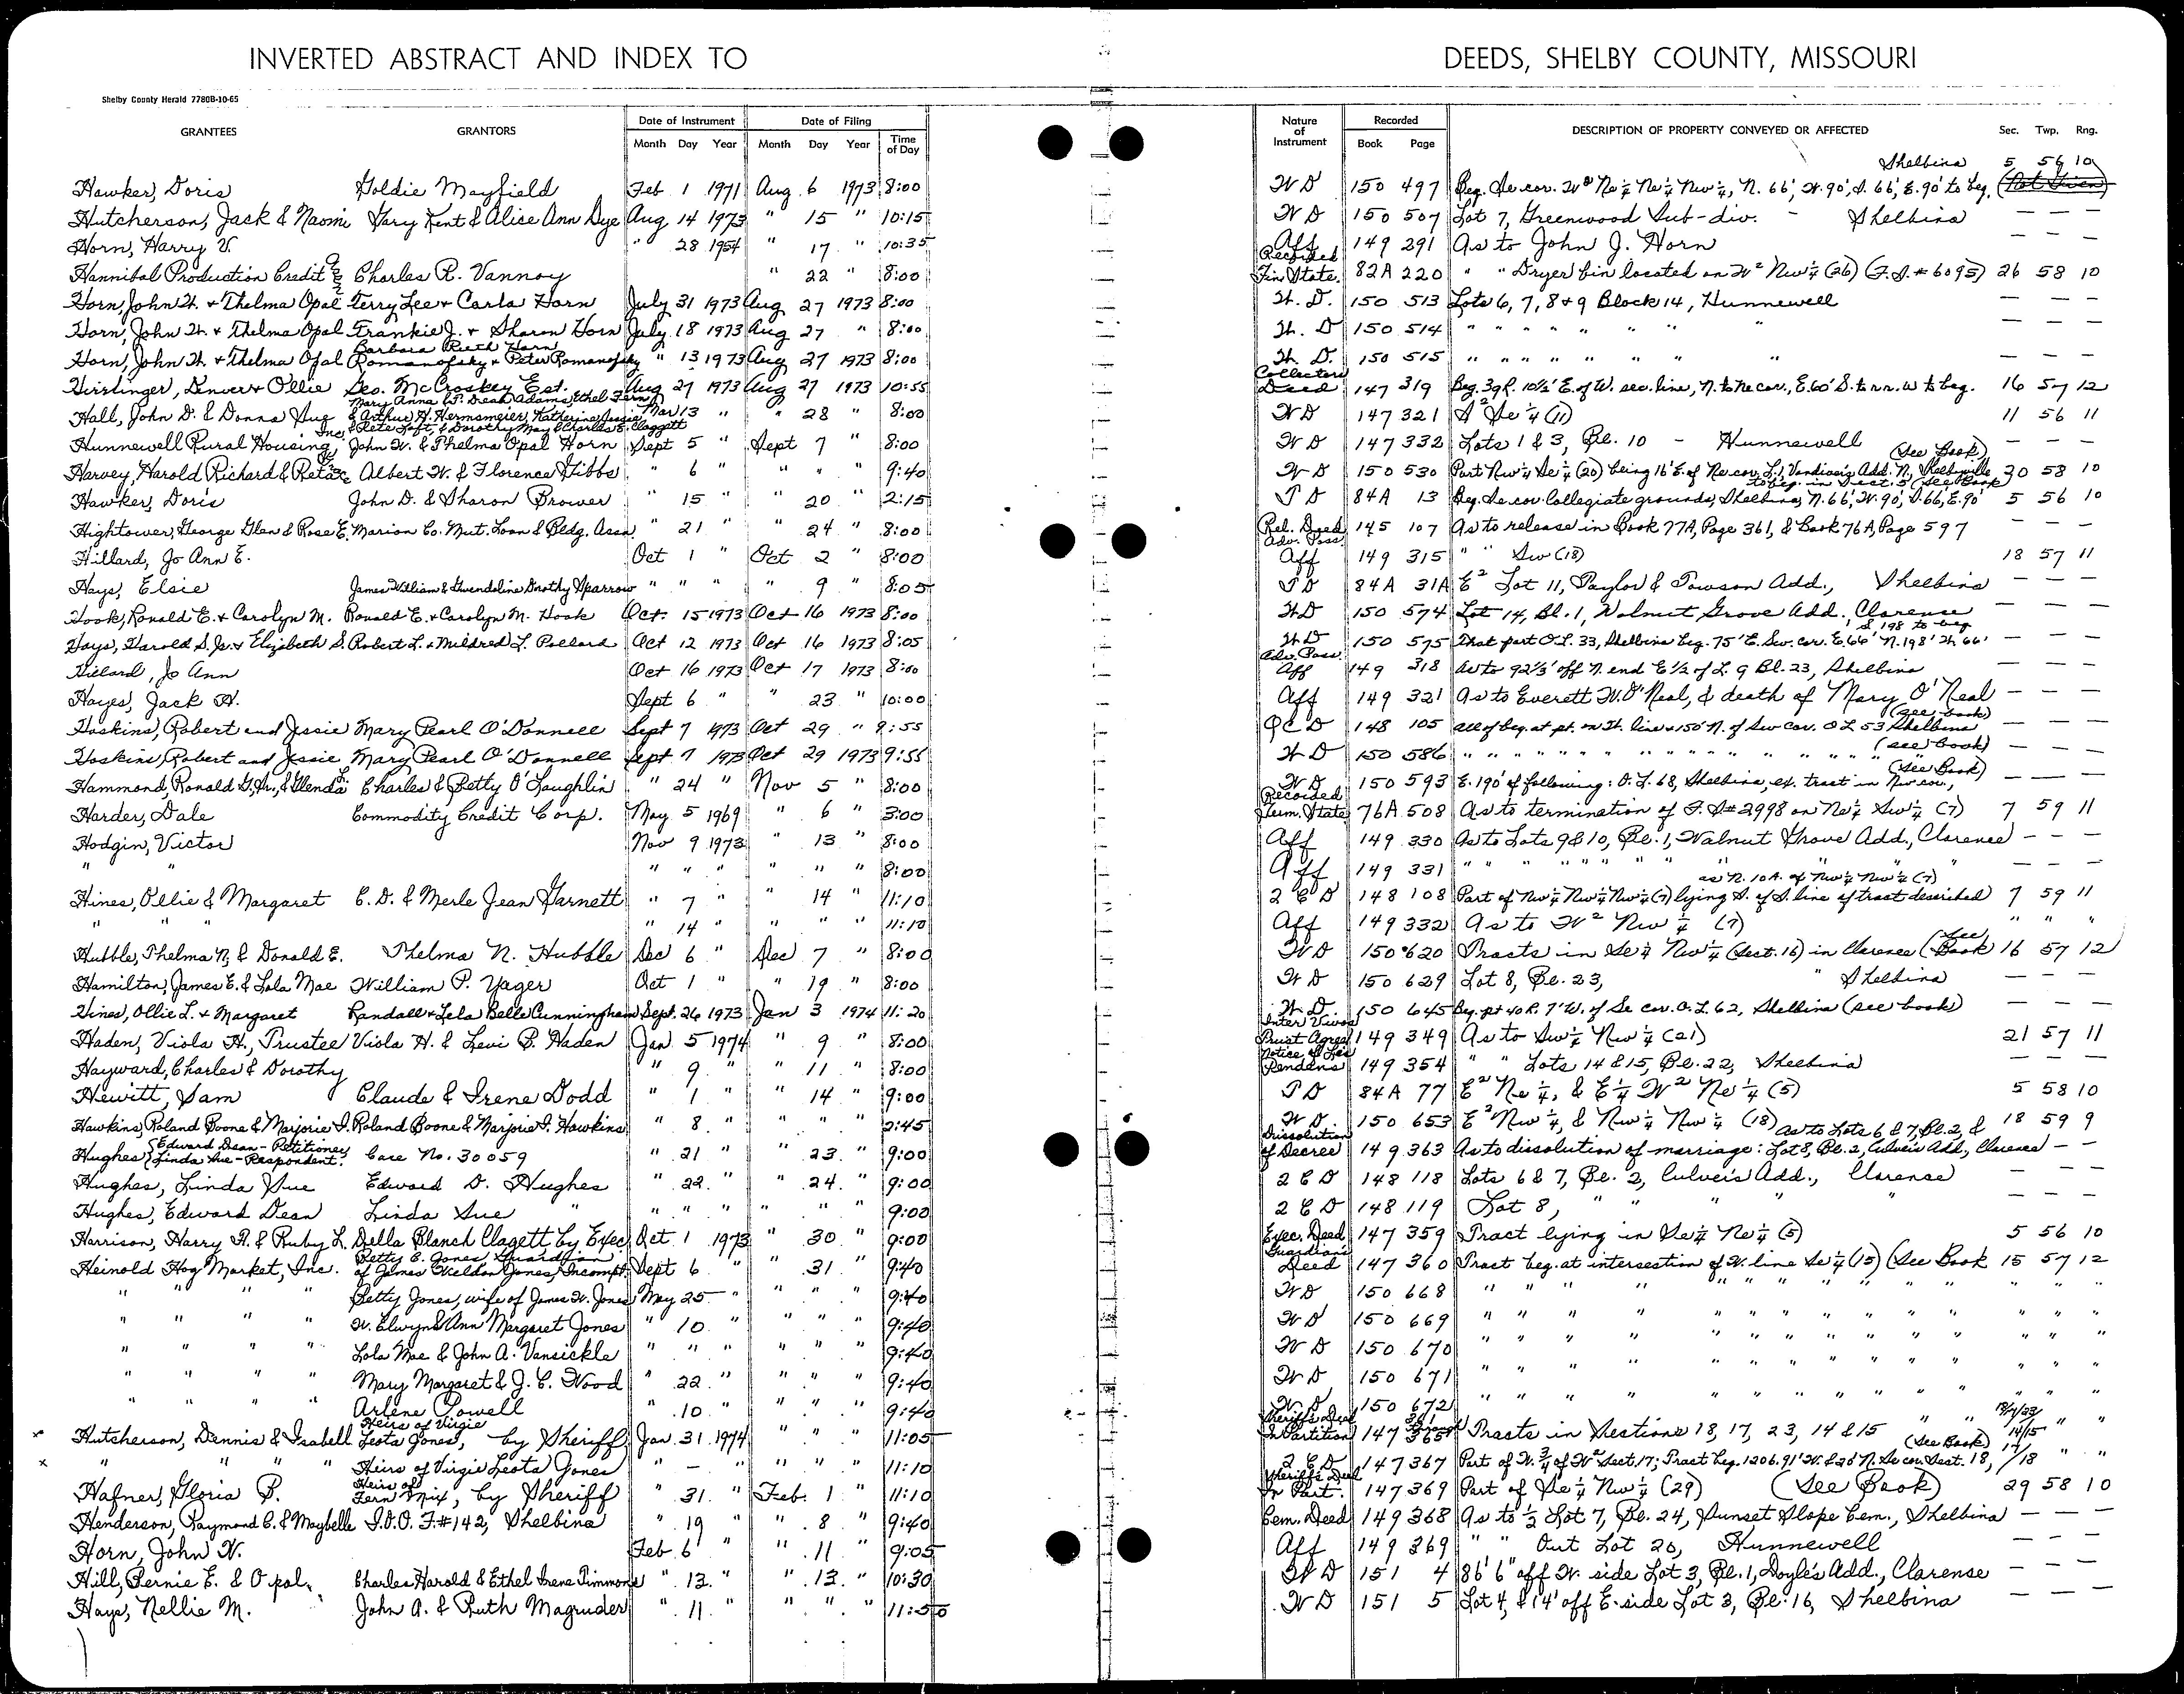 INVERTED ABSTRACT AND INDEX TO DEEDS, SHELBY COUNTY, MISSOURI
Shelby County Herald 7780B-10-65
GRANTEES GRANTORS Date of Instrument Date of Filing Nature of Instrument Recorded DESCRIPTION OF PROPERTY CONVEYED OR AFFECTED Sec. Twp. Rng.
Month Day Year Month Day Year Time of Day Book Page
Hawker, Doris Goldie Mayfield Feb 1 1971 Aug. 6 1973 8:00 W D 150 497 Beg. Se cor. W² Ne¼ Ne¼ Nw¼, N. 66', W. 90', S. 66', E. 90' to beg. Shelbina (Not Given) 5 56 10
Hutcherson, Jack & Naomi Gary Kent & Alice Ann Dye Aug 14 1973 " 15 " 10:15 W D 150 507 Lot 7, Greenwood Sub-div. - Shelbina — — —
Horn, Harry V. " 28 1954 " 17 " 10:35 Aff 149 291 As to John J. Horn — — —
Hannibal Production Credit Charles R. Vannoy " 22 " 8:00 Recorded Fin. State. 82A 220 " " Dryer bin located on W² Nw¼ (26) (F.S. # 6095) 26 58 10
Horn, John W. + Thelma Opal Terry Lee + Carla Horn July 31 1973 Aug 27 1973 8:00 W. D. 150 513 Lots 6, 7, 8 + 9 Block 14, Hunnewell — — —
Horn, John W. + Thelma Opal Frankie J. + Sharon Horn July 18 1973 Aug 27 " 8:00 W. D 150 514 " " " " " " " — — —
Horn, John W. + Thelma Opal Barbara Ruth Horn Romanofsky + Peter Romanofsky " 13 1973 Aug 27 1973 8:00 W. D. 150 515 " " " " " " " — — —
Hirrlinger, Denver + Ollie Geo. McCroskey Est. Aug 27 1973 Aug 27 1973 10:55 Collectors Deed 147 319 Beg. 39 R. 10½' E. of W. sec. line, N. to Ne cor., E. 60' S. to r.r. w to beg. 16 57 12
Hall, John D. & Donna Sue Mary Anna & J. Dean Adams, Ethel Fern & Arthur H. Hermsmeier, Katherine & Pete Loft, & Dorothy May & Charles E. Claggett Mar 13 " " 28 " 8:00 W D 147 321 S² Se¼ (11) 11 56 11
Hunnewell Rural Housing, Inc. John W. & Thelma Opal Horn Sept 5 " Sept 7 " 8:00 W D 147 332 Lots 1 & 3, Bl. 10 - Hunnewell — — —
Harvey, Harold Richard & Reta Albert W. & Florence Gibbs " 6 " " " " 9:40 W D 150 530 Part Nw¼ Se¼ (20) being 16' E. of Ne cor. L. 1, Vandiver's Add. N., Shelbyville (See Book) 20 58 10
Hawker, Doris John D. & Sharon Brower " 15 " " 20 " 2:15 T D 84A 13 Beg. Se cor. Collegiate grounds, Shelbina, N. 66', W. 90', S. 66, E. 90' to beg. in Sect. 5 (See Book) 5 56 10
Hightower, George Glen & Rose E. Marion Co. Mut. Loan & Bldg. Assn. " 21 " " 24 " 8:00 Rel. Deed 145 107 As to release in Book 77A, Page 361, & Book 76A, Page 597 — — —
Hillard, Jo Ann E. Oct 1 " Oct 2 " 8:00 Adv. Poss. Aff 149 315 " " Sw (18) 18 57 11
Hays, Elsie James William & Gwendoline Dorothy Sparrow " " " " 9 " 8:05 T D 84A 31A E² Lot 11, Taylor & Towson Add., Shelbina — — —
Hook, Ronald E. + Carolyn M. Ronald E. + Carolyn M. Hook Oct. 15 1973 Oct 16 1973 8:00 W D 150 574 Lot 14, Bl. 1, Walnut Grove Add. Clarence — — —
Hays, Harold S. Jr. + Elizabeth S. Robert L. + Mildred L. Pollard Oct 12 1973 Oct 16 1973 8:05 W D 150 575 That part O L. 33, Shelbina beg. 75' E. Sw. cor. E. 66' N. 198' W. 66' S 198 to beg — — —
Hillard, Jo Ann Oct 16 1973 Oct 17 1973 8:00 Adv. Poss. Aff 149 318 As to 92⅓' off N. end E 1/2 of L. 9 Bl. 23, Shelbina — — —
Hayes, Jack H. Sept 6 " " 23 " 10:00 Aff 149 321 As to Everett W. O'Neal, & death of Mary O'Neal — — —
Hoskins, Robert and Jessie Mary Pearl O'Donnell Sept 7 1973 Oct 29 " 9:55 Q C D 148 105 all of beg. at pt. on W. line + 150' N. of Sw cor. O L 53 Shelbina (see book) — — —
Hoskins, Robert and Jessie Mary Pearl O'Donnell Sept 7 1973 Oct 29 1973 9:55 W D 150 586 " " " " " " " " " " " (see book) — — —
Hammond, Ronald G., Jr., & Glenda L. Charles & Betty O'Laughlin " 24 " Nov 5 " 8:00 W D 150 593 E. 190' of following: O. L. 68, Shelbina, ex. tract in Nw cor., (See Book) — — —
Harder, Dale Commodity Credit Corp. May 5 1969 " 6 " 3:00 Recorded Term. State. 76A 508 As to termination of F. S # 2998 on Ne¼ Sw¼ (7) 7 59 11
Hodgin, Victor Nov 9 1973 " 13 " 8:00 Aff 149 330 As to Lots 9 & 10, Bl. 1, Walnut Grove Add., Clarence — — —
" " " " " " " " 8:00 Aff 149 331 " " " " " " " " " " — — —
Hines, Ollie & Margaret C. D. & Merle Jean Garnett " 7 " " 14 " 11:10 2 C D 148 108 Part of Nw¼ Nw¼ Nw¼ (7) lying S. of S. line of tract described as N. 10 A. of Nw¼ Nw¼ (7) 7 59 11
" " " " 14 " " " " 11:10 Aff 149 332 As to W² Nw¼ (7) " " "
Hubble, Thelma N. & Donald E. Thelma N. Hubble Dec 6 " Dec 7 " 8:00 W D 150 620 Tracts in Se¼ Nw¼ (Sect. 16) in Clarence (See Book 16 57 12
Hamilton, James E. & Lola Mae William P. Yager Oct 1 " " 19 " 8:00 W D 150 629 Lot 8, Bl. 23, " Shelbina — — —
Hines, Ollie L. + Margaret Randall + Lela Belle Cunningham Sept. 26 1973 Jan 3 1974 11:20 W. D. 150 645 Beg. pt 40 R. 7' W. of Se cor. O. L. 62, Shelbina (see book) — — —
Haden, Viola H., Trustee Viola H. & Levi B. Haden Jan 5 1974 " 9 " 8:00 Inter Vivos Trust Agree 149 349 As to Sw¼ Nw¼ (21) 21 57 11
Hayward, Charles & Dorothy " 9 " " 11 " 8:00 Notice of Lis Pendens 149 354 " " Lots 14 & 15, Bl. 22, Shelbina — — —
Hewitt, Sam Claude & Irene Dodd " 1 " " 14 " 9:00 T D 84A 77 E² Ne¼, & E¼ W² Ne¼ (5) 5 58 10
Hawkins, Roland Boone & Marjorie I. Roland Boone & Marjorie I. Hawkins " 8 " " " " 2:45 W D 150 653 E² Nw¼, & Nw¼ Nw¼ (18) 18 59 9
Hughes { Edward Dean - Petitioner Linda Sue - Respondent. Case No. 30059 " 21 " " 23 " 9:00 Dissolution of Decree 149 363 As to dissolution of marriage: As to Lots 6 & 7, Bl. 2, & Lot 8, Bl. 2, Culver's Add., Clarence — —
Hughes, Linda Sue Edward D. Hughes " 22 " " 24 " 9:00 2 C D 148 118 Lots 6 & 7, Bl. 2, Culver's Add., Clarense — — —
Hughes, Edward Dean Linda Sue " " " " " " " 9:00 2 C D 148 119 Lot 8, " " " " — — —
Harrison, Harry R. & Ruby L. Della Blanch Clagett by Exec Oct. 1 1973 " 30 " 9:00 Exec. Deed 147 359 Tract lying in Se¼ Ne¼ (5) 5 56 10
Heinold Hog Market, Inc. Betty E. Jones Guardian of James Weldon Jones, Incompt. Sept 6 " " 31 " 9:40 Guardian's Deed 147 360 Tract beg. at intersection of W. line Se¼ (15) (See Book 15 57 12
" " " " Betty Jones, wife of James W. Jones May 25 " " " " 9:40 W D 150 668 " " " " " " " " " " " " "
" " " " W. Elwyn & Ann Margaret Jones " 10 " " " " 9:40 W D 150 669 " " " " " " " " " " " " "
" " " " Lola Mae & John A. Vansickle " " " " " " 9:40 W D 150 670 " " " " " " " " " " " " "
" " " " Mary Margaret & J. C. Wood " 22 " " " " 9:40 W D 150 671 " " " " " " " " " " " " "
" " " " Arlene Powell " 10 " " " " 9:40 W. D 150 672 " " " " " " " " " " " " "
Hutcherson, Dennis & Isabell Heirs of Virgie Leota Jones, by Sheriff Jan. 31 1974 " " " 11:05 Sheriff's Deed In Partition 147 361 through 365 Tracts in Sections 18, 17, 23, 14 & 15 " " 18/17/23/ 14/15 " "
" " " " Heirs of Virgie Leota Jones " — " " " " 11:10 2 C D 147 367 Part of N. ¾ of W² Sect. 17; Tract beg. 1206.91' W. & 20' N. Se cor. Sect. 18, (See Book) 17/18 " "
Hafner, Gloria B. Heirs of Fern Mix, by Sheriff " 31 " Feb. 1 " 11:10 Sheriff's Deed In Part. 147 369 Part of Se¼ Nw¼ (29) (See Book) 29 58 10
Henderson, Raymond C. & Maybelle I.O.O. F. #142, Shelbina " 19 " 8 " 9:40 Cem. Deed 149 368 As to ½ Lot 7, Bl. 24, Sunset Slope Cem., Shelbina — — —
Horn, John W. Feb 6 " " 11 " 9:05 Aff 149 369 " " Out Lot 20, Hunnewell — — —
Hill, Bernie E. & Opal Charles Harold & Ethel Irene Timmons " 13 " " 13 " 10:30 W D 151 4 86' 6" off W. side Lot 3, Bl. 1, Doyle's Add., Clarense — — —
Hays, Nellie M. John A. & Ruth Magruder " 11 " " " " 11:50 W D 151 5 Lot 4, & 14' off E. side Lot 3, Bl. 16, Shelbina — — —